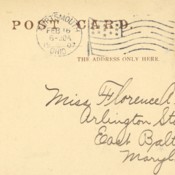 POST CARD
FEB 16
OHIO
THE ADDRESS ONLY HERE
Miss Florence A.
Arlington
East Balt
Maryl